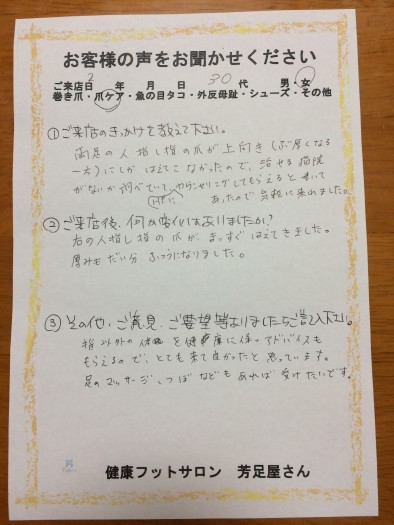 お客様の声をお聞かせください
ご来店日 2 年 月 日 30 代 男・女
巻き爪・爪ケア・魚の目タコ・外反母趾・シューズ・その他
①ご来店のきっかけを教えて下さい。
両足の人指し指の爪が上向き(ぶ厚くなる
一方)にしかはえてこなかったので、治せる病院
がないか調べていて、カウンセリングしてもらえると
HPに あったので気軽に来れました。
②ご来店後、何か変化はありましたか?
右の人指し指の爪が、まっすぐはえてきました。
厚みもだい分ふつうになりました。
③その他、ご意見、ご要望等ありましたらご記入下さい。
指以外の体を健康に アドバイスも
もらえるので、とても来て良かったと思っています。
足のマッサージ、つぼなどもあれば受けたいです。
健康フットサロン 芳足屋さん